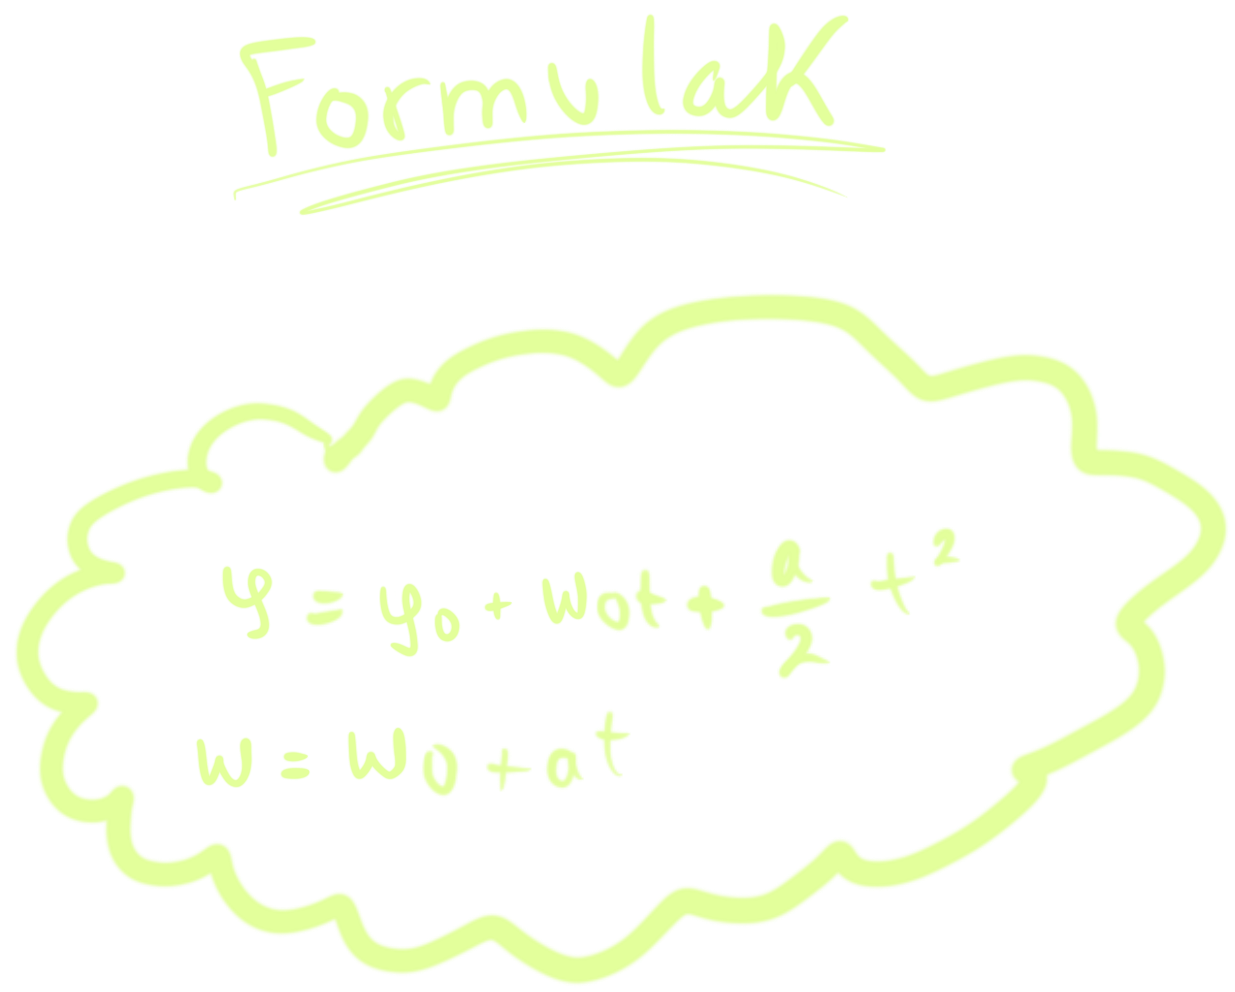 FormulaK
φ = φ₀ + ω₀t + a/2 t²
ω = ω₀ + at